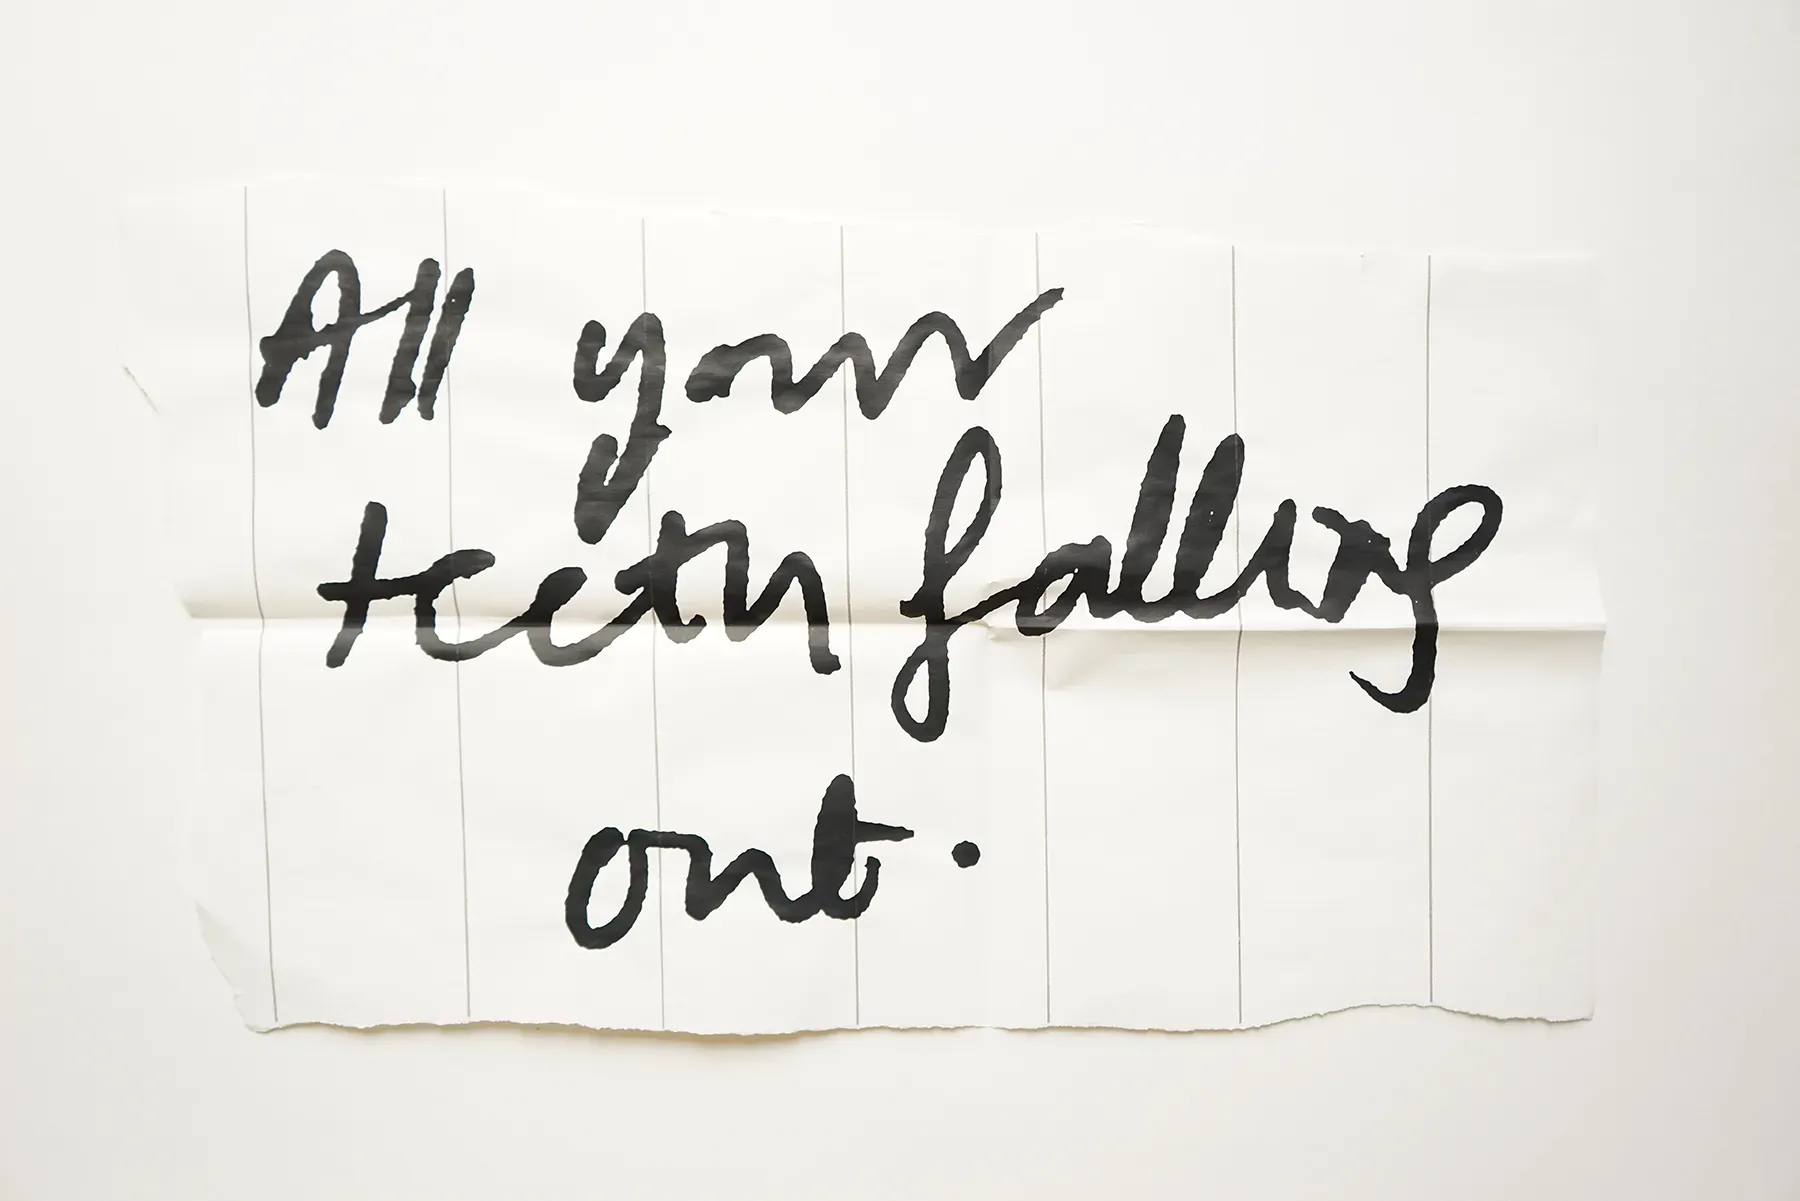 All your
teeth falling
out.